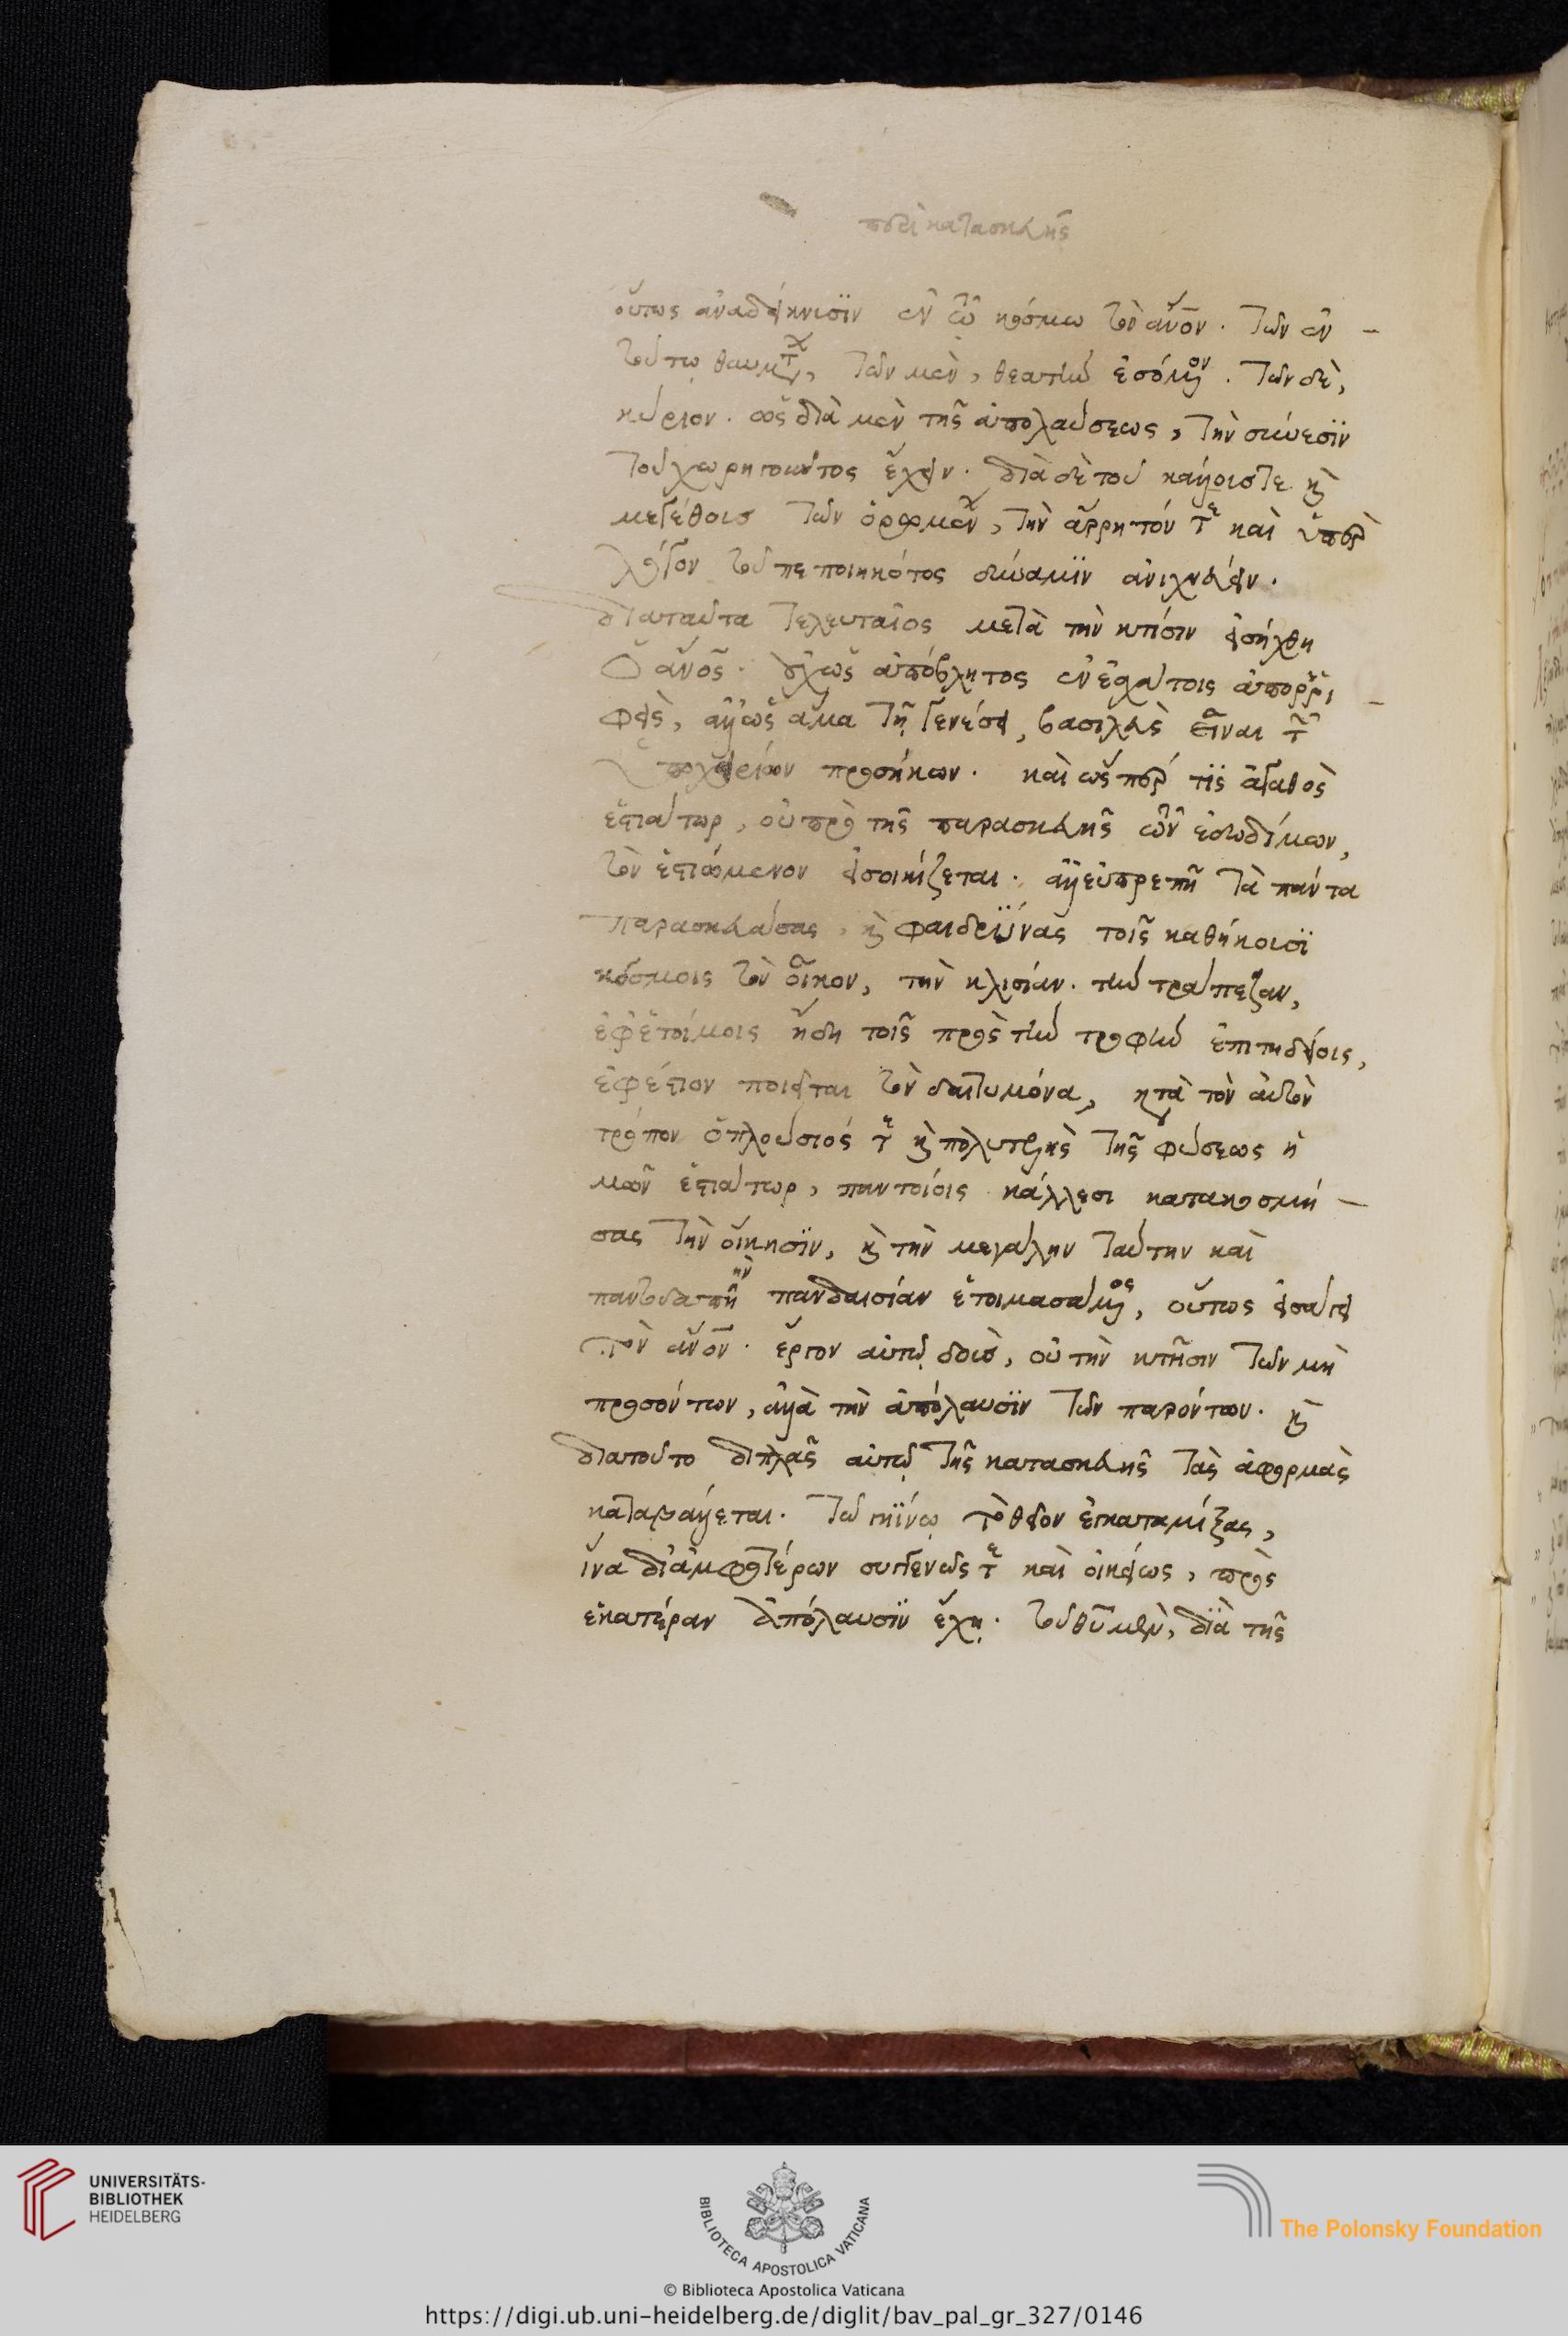 περὶ κατασκευῆς
οὕτως ἀναδείκνυσϊν ἐν τῶ κόσμω τὸν ἄνον. τῶν ἐν –
τούτω θαυμάτων, τῶν μὲν, θεατὴν ἐσόμενον. τῶν δὲ,
κύριον. ὡς διὰ μὲν τῆς ἀπολαύσεως, τὴν σύνεσϊν
τοῦ χωρηγοῦντος ἔχειν. διὰ δὲ τοῦ κάλλους τε καὶ
μεγέθους τῶν ὁρωμένων, τὴν ἄρρητόν τε καὶ ὑπὲρ
λόγον τοῦ πεποιηκότος δύναμϊν ἀνιχνεύειν.
διαταῦτα τελευταῖος μετὰ τὴν κτίσιν εἰσήχθη
ὁ ἄνος. οὐχ ὡς ἀπόβλητος ἐν ἐσχάτοις ἀπορρι –
φεὶς, ἀλλ' ὡς ἅμα τῇ γενέσει, βασιλεὺς εἶναι τῶν
ὑποχειρίων προσήκων. καὶ ὥσπερ τϊς ἀγαθὸς
ἑστιάτωρ, οὐ πρὸ τῆς παρασκευῆς τῶν ἐδωδίμων,
τὸν ἑστιώμενον εἰσοικίζεται. ἀλλ' εὐπρεπῆ τὰ πάντα
παρασκευάσας, καὶ φαιδρϋνας τοῖς καθήκουσϊ
κόσμοις τὸν οἶκον, τὴν κλισίαν. τὴν τράπεζαν,
ἐφ' ἑτοίμοις ἤδη τοῖς πρὸς τὴν τροφὴν ἐπιτηδείοις,
ἐφέστιον ποιεῖται τὸν δαιτυμόνα, κατὰ τὸν αὐτὸν
τρόπον ὁ πλούσιός τε καὶ πολυτελὴς τῆς φύσεως ἡ
μῶν ἑστιάτωρ, παντοίοις κάλλεσι κατακοσμή –
σας τὴν οἴκησϊν, καὶ τὴν μεγάλην ταύτην καὶ
παντοδαπὴν πανδαισίαν ἑτοιμασάμενος, οὕτως εἰσάγει
τὸν ἄνον. ἔργον αὐτῷ δοὺς, οὐ τὴν κτῆσιν τῶν μὴ
προσόντων, ἀλλὰ τὴν ἀπόλαυσϊν τῶν παρόντων. καὶ
διατοῦτο διπλᾶς αὐτῷ τῆς κατασκευῆς τὰς ἀφορμὰς
καταβάλλεται. τῶ γηϊνῳ τὸ θεῖον ἐγκαταμίξας,
ἵνα δι' ἀμφοτέρων συγγενῶς τε καὶ οἰκείως, πρὸς
ἑκατέραν ἀπόλαυσϊν ἔχῃ. τοῦ θῦ μὲν, διὰ τῆς
UNIVERSITÄTS-
BIBLIOTHEK
HEIDELBERG
BIBLIOTECA APOSTOLICA VATICANA
© Biblioteca Apostolica Vaticana
The Polonsky Foundation
https://digi.ub.uni-heidelberg.de/diglit/bav_pal_gr_327/0146